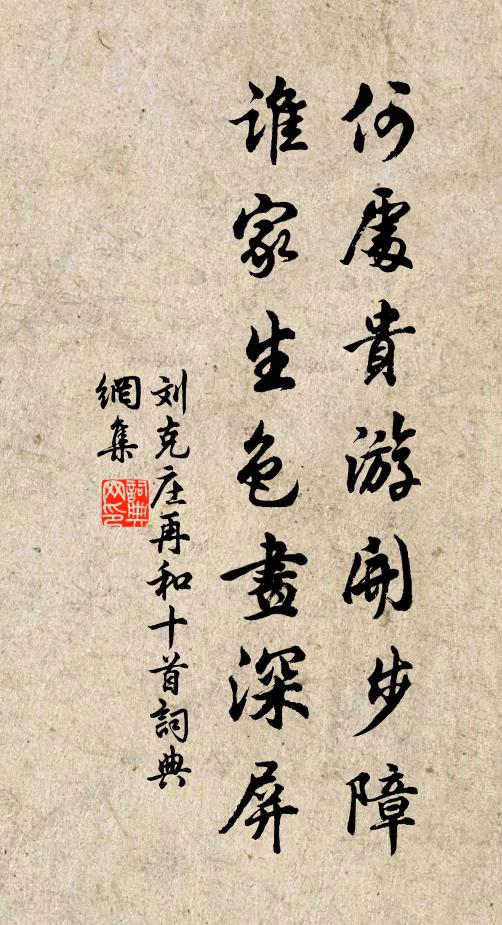 何處貴游開步障
誰家生色畫深屏
刘克庄再和十首詞典
網集
詞典
网印